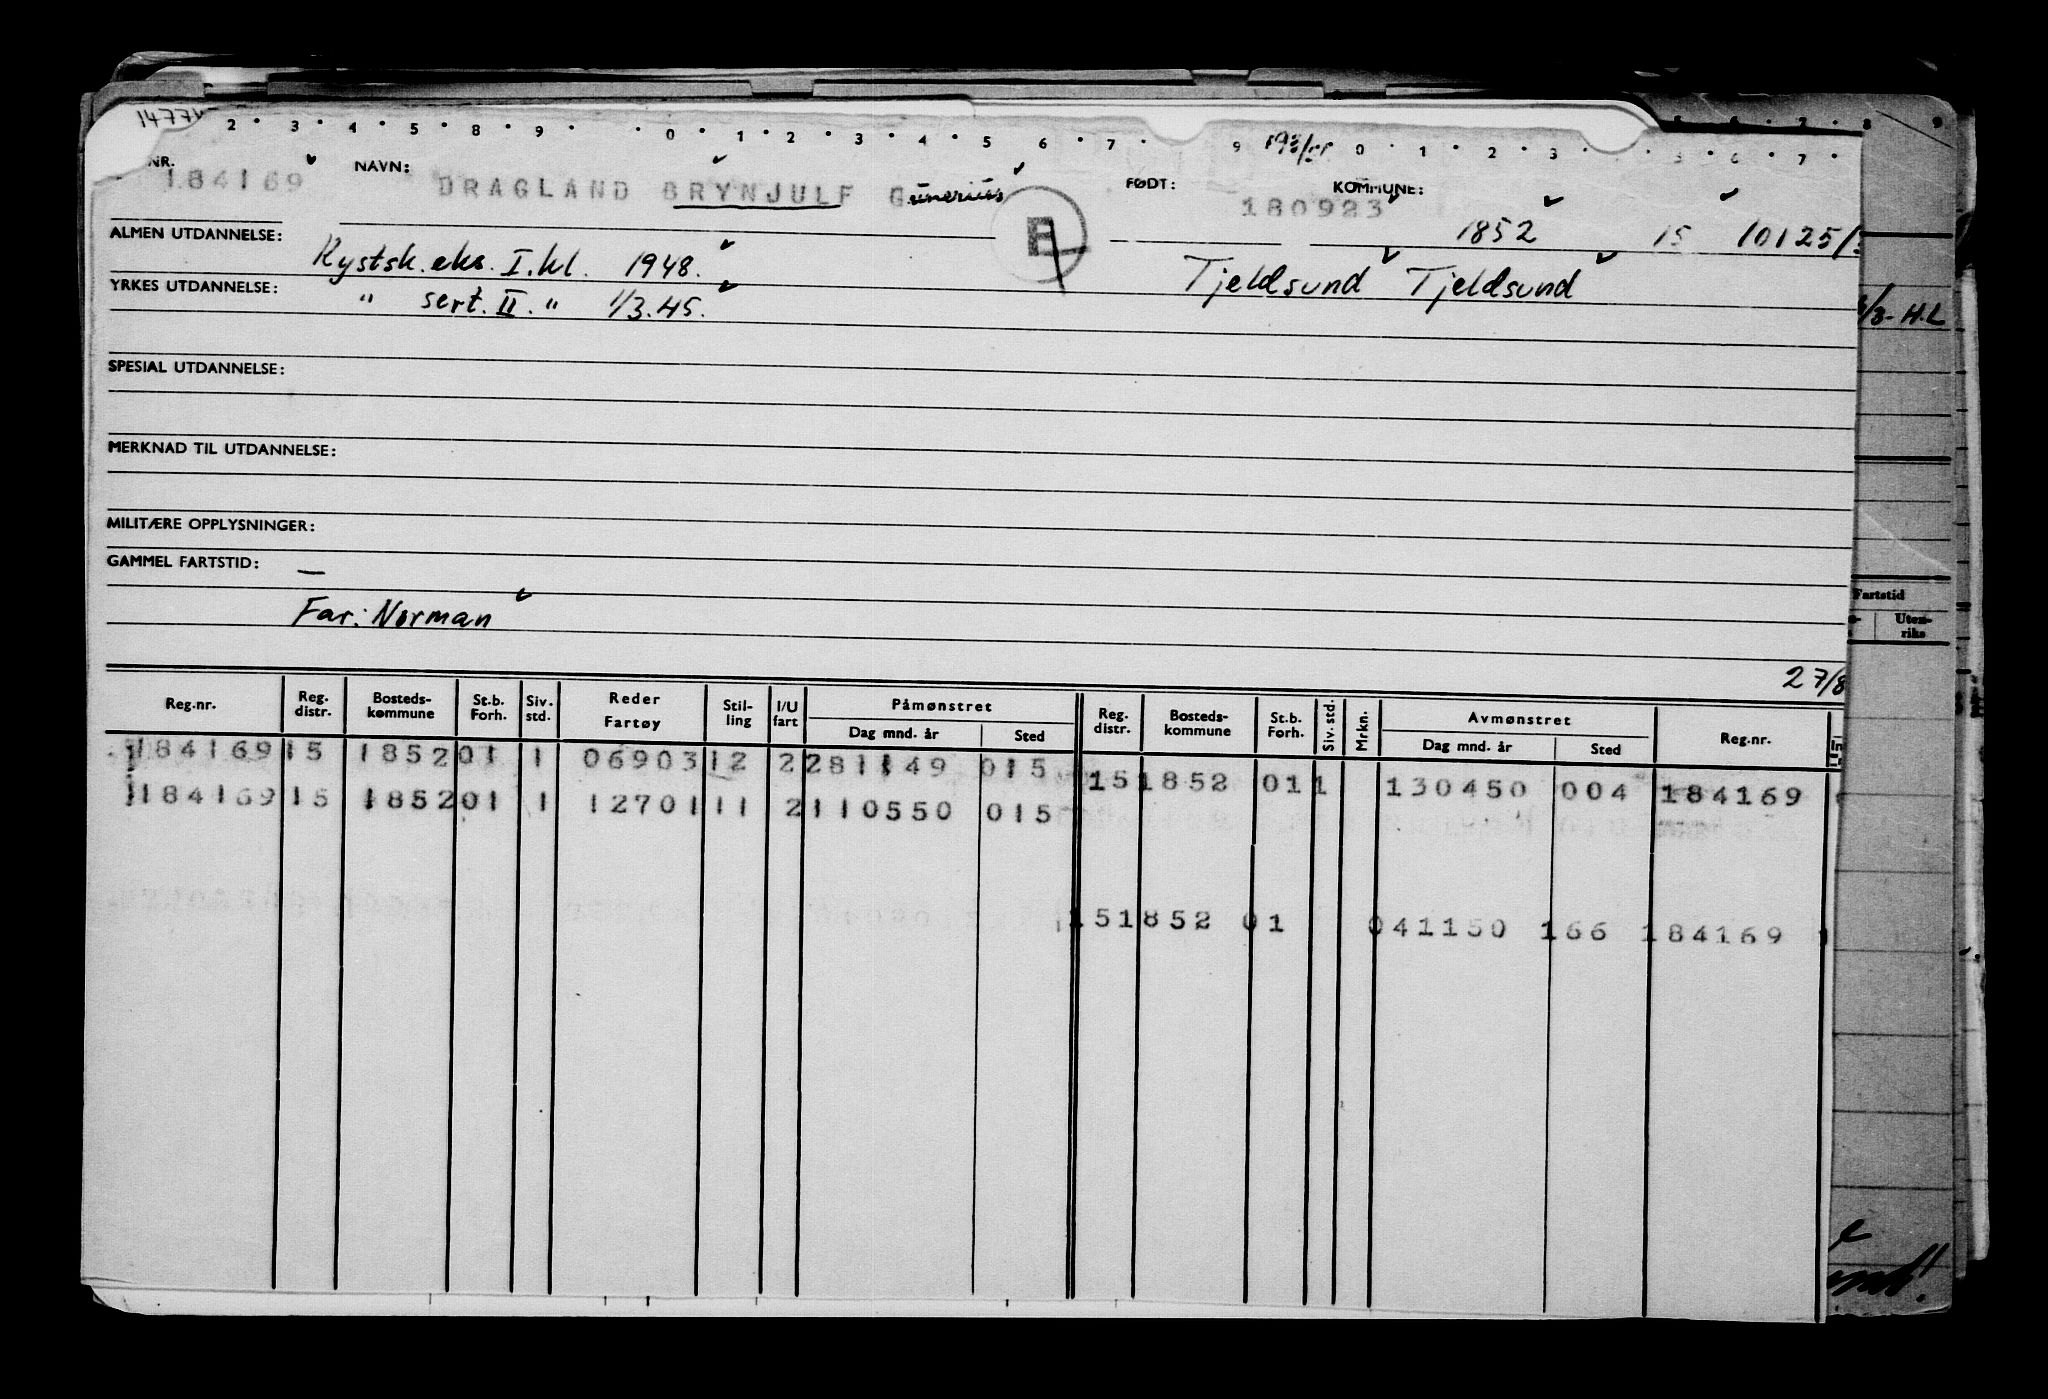 2 3 4 5 8 9 0 1 2 3 4 5 6 7 9 0 1 2 3 5 6 7 8 9
NR. NAVN: FØDT: KOMMUNE:
184169 DRAGLAND BRYNJULF Gunerius 180923 1852 15 10125/
E
ALMEN UTDANNELSE: Kystsk. eks. I. kl. 1948. Tjeldsund Tjeldsund
YRKES UTDANNELSE: " sert. II. " 1/3.45.
/3- H.L
SPESIAL UTDANNELSE:
MERKNAD TIL UTDANNELSE:
MILITÆRE OPPLYSNINGER:
GAMMEL FARTSTID: —
Far: Norman
Fartstid
Uten-
riks
27/8
Reg.nr. Reg. distr. Bosteds- kommune St.b. Forh. Siv. std. Reder Fartøy Stil- ling I/U fart Påmønstret Dag mnd. år Sted Reg. distr. Bosteds- kommune St.b. Forh. Siv. std. Mrkn. Avmønstret Dag mnd. år Sted Reg.nr.
184169 15 1852 01 1 06903 12 2 281149 015 15 1852 01 1 130450 004 184169
184169 15 1852 01 1 12701 11 2 110550 015
15 1852 01 041150 166 184169